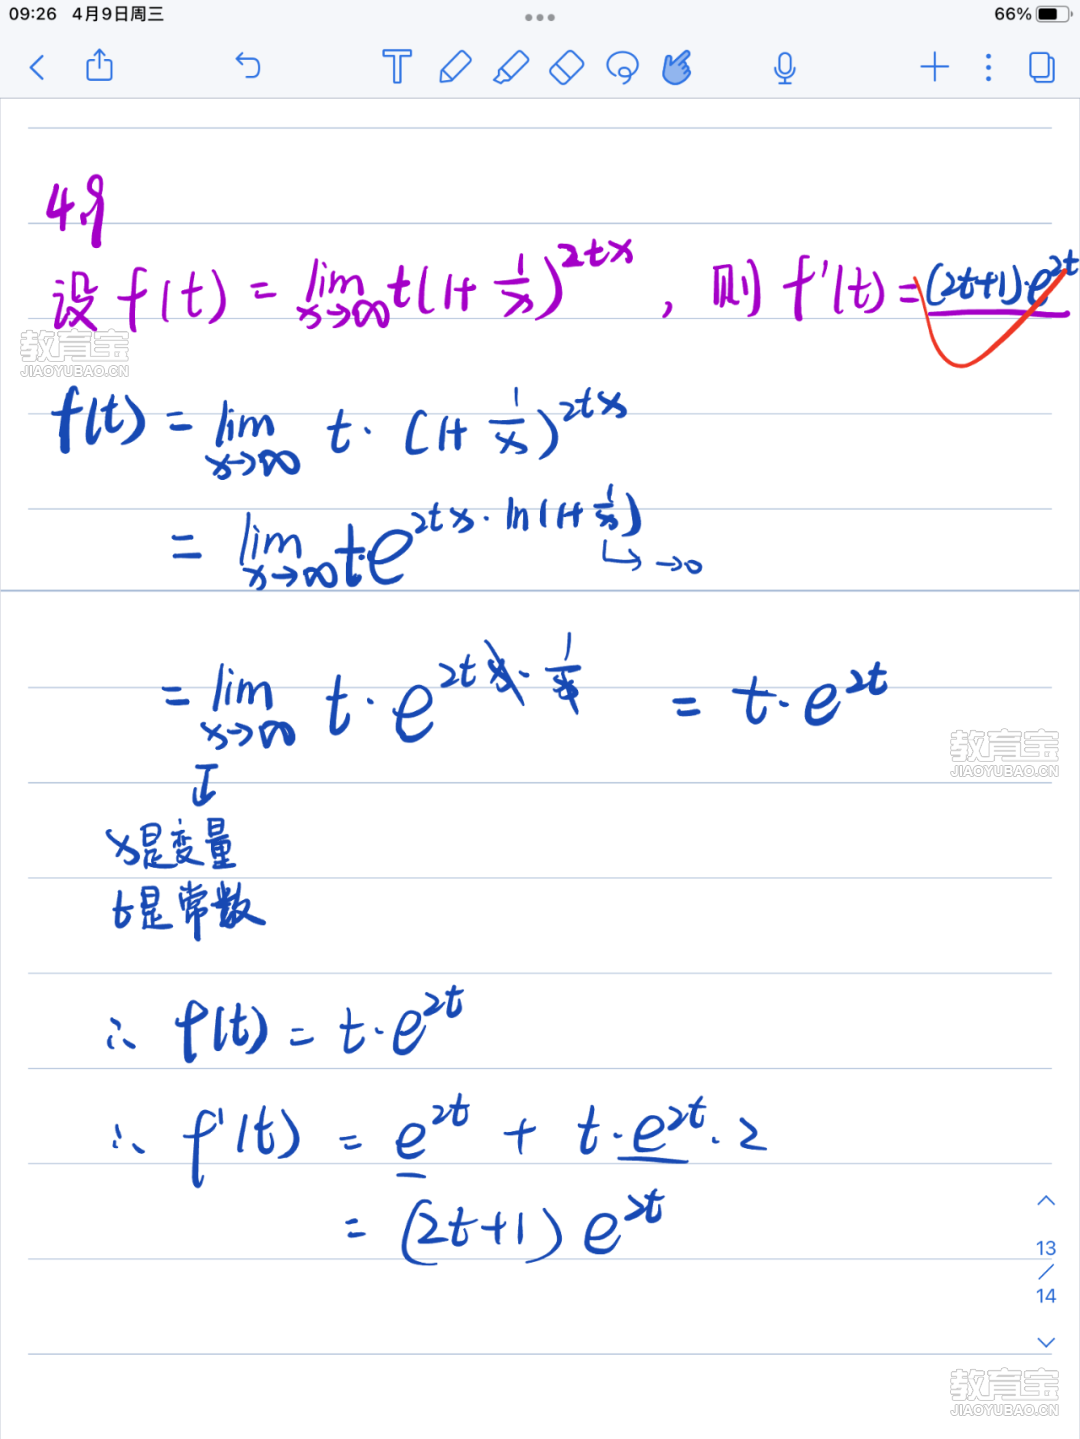 09:26 4月9日周三 66%
4.9
设 f(t) = lim x→∞ t(1+1/x)^2tx , 则 f'(t) = (2t+1)·e^2t
教育宝
JIAOYUBAO.CN
f(t) = lim x→∞ t·(1+1/x)^2tx
= lim x→∞ t·e^2tx·ln(1+1/x)
↳ →0
= lim x→∞ t·e^2tx·1/x = t·e^2t
教育宝
JIAOYUBAO.CN
↓
x是变量
t是常数
∴ f(t) = t·e^2t
∴ f'(t) = e^2t + t·e^2t·2
= (2t+1) e^2t
13
/
14
教育宝
JIAOYUBAO.CN